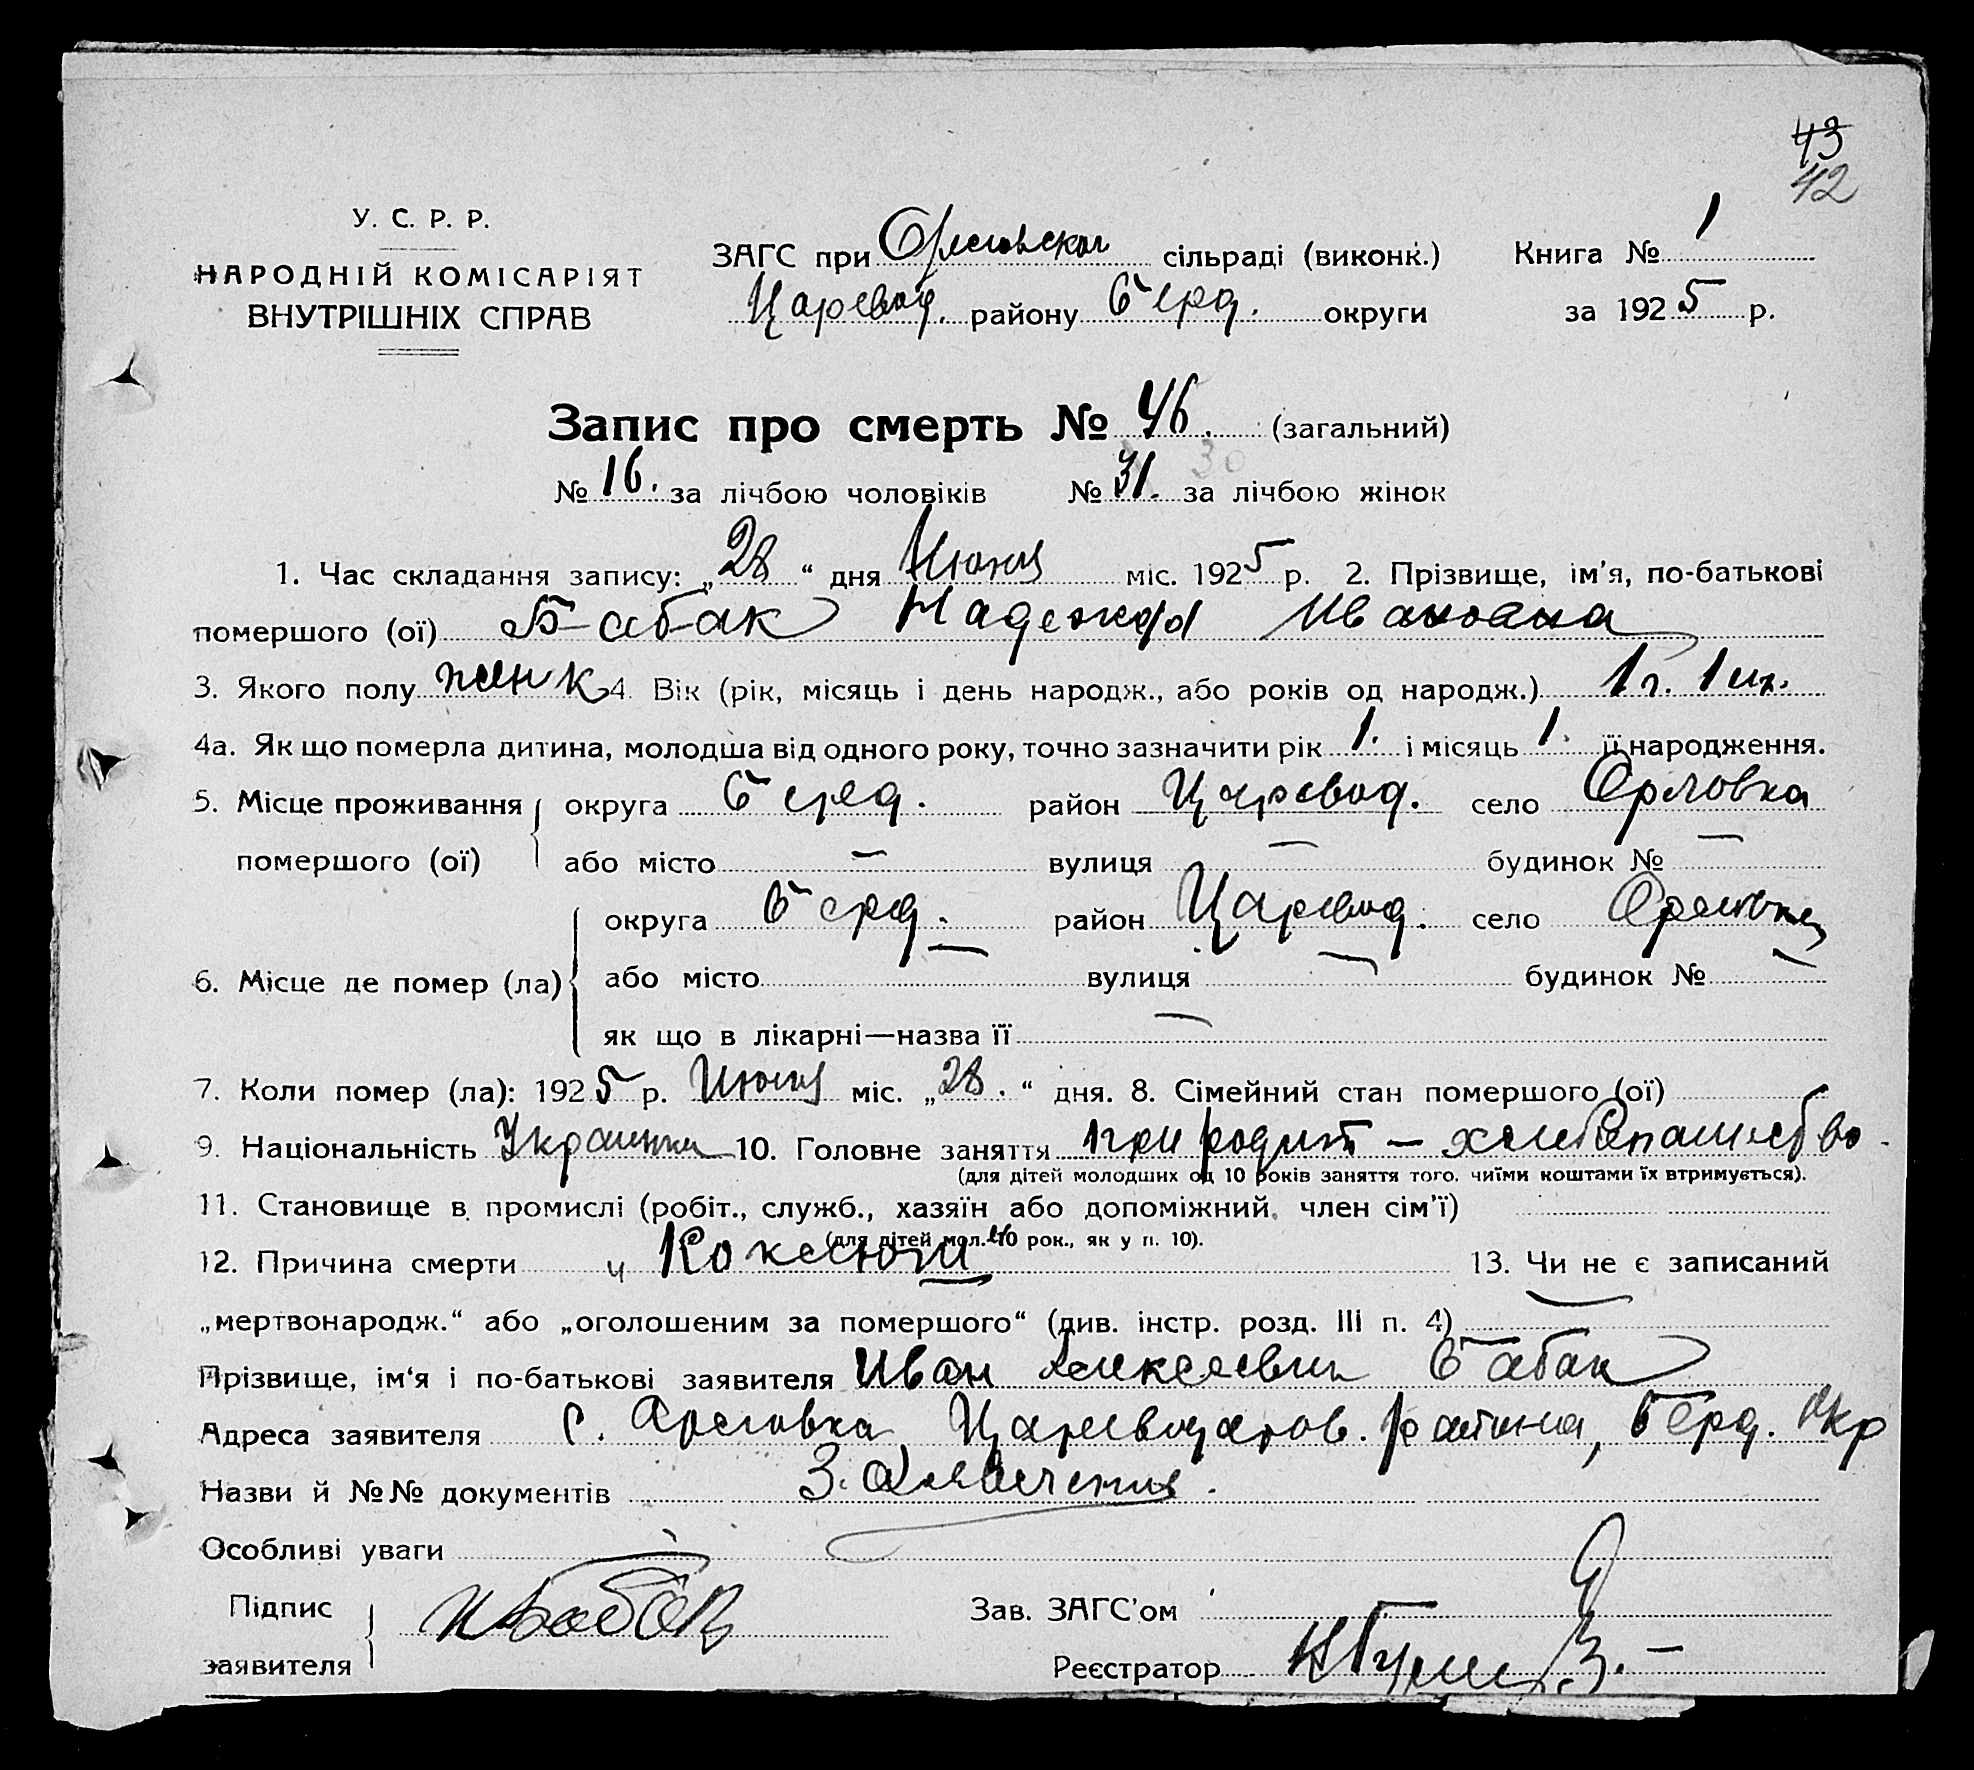 43
42
У. С. Р. Р.
НАРОДНІЙ КОМІСАРІЯТ
ВНУТРІШНІХ СПРАВ
ЗАГС при Орловской сільраді (виконк.)
Царевод. району Берд. округи
Книга № 1
за 1925 р.
Запис про смерть № 46. (загальний)
30
№ 16. за лічбою чоловіків № 31. за лічбою жінок
1. Час складання запису: „28“ дня Июня міс. 1925 р. 2. Прізвище, ім'я, по-батькові
помершого (ої) Бабак Надежда Ивановна
3. Якого полу женк 4. Вік (рік, місяць і день народж., або років од народж.) 1 г. 1 м.
4а. Як що померла дитина, молодша від одного року, точно зазначити рік 1. і місяць 1. її народження.
5. Місце проживання округа Берд. район Царевод. село Орловка
помершого (ої) або місто — вулиця — будинок № —
округа Берд. район Царевод. село Орловка
6. Місце де помер (ла) або місто — вулиця — будинок № —
як що в лікарні—назва її —
7. Коли помер (ла): 1925 р. Июня міс. „28.“ дня. 8. Сімейний стан помершого (ої)
9. Національність Украинка 10. Головне заняття при родит — хлебопашество
(для дітей молодших од 10 років заняття того, чиїми коштами їх втримується).
11. Становище в промислі (робіт., служб., хазяїн або допоміжний член сім'ї)
(для дітей мол. 10 рок., як у п. 10).
12. Причина смерти Коклюш 13. Чи не є записаний
„мертвонародж.“ або „оголошеним за помершого“ (див. інстр. розд. III п. 4) —
Прізвище, ім'я і по-батькові заявителя Иван Алексеевич Бабак
Адреса заявителя с. Орловка, Царевод. района, Берд. Окр
Назви й №№ документів
Особливі уваги
Підпис заявителя И Бабак
Зав. ЗАГС'ом
Реєстратор